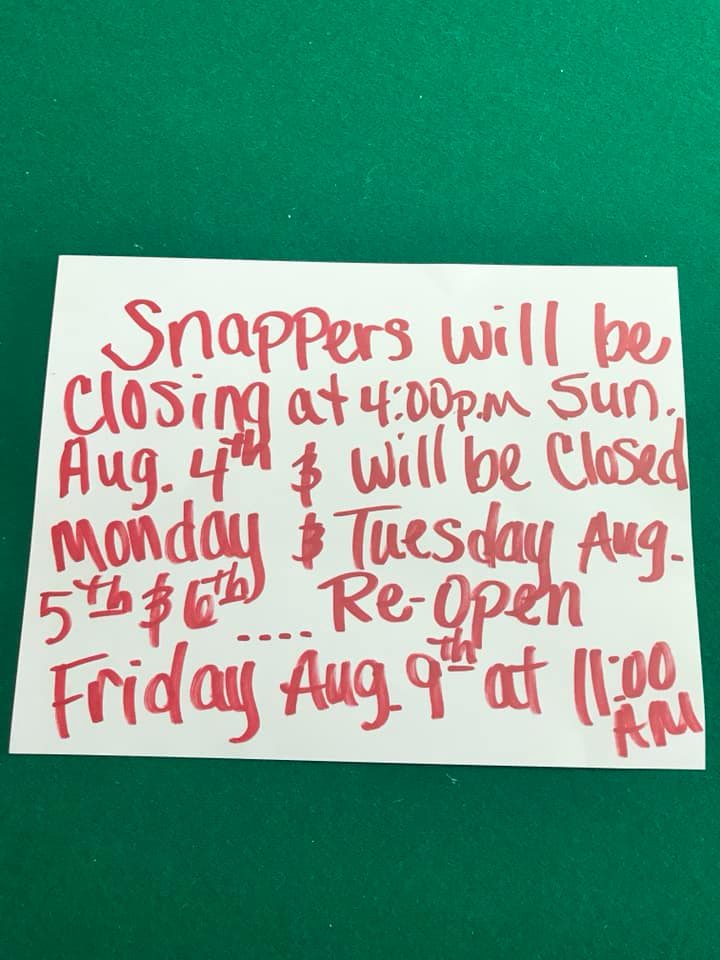 Snappers will be
closing at 4:00p.m Sun.
Aug. 4th & will be closed
Monday & Tuesday Aug.
5th & 6th .... Re-Open
Friday Aug. 9th at 11:00
AM